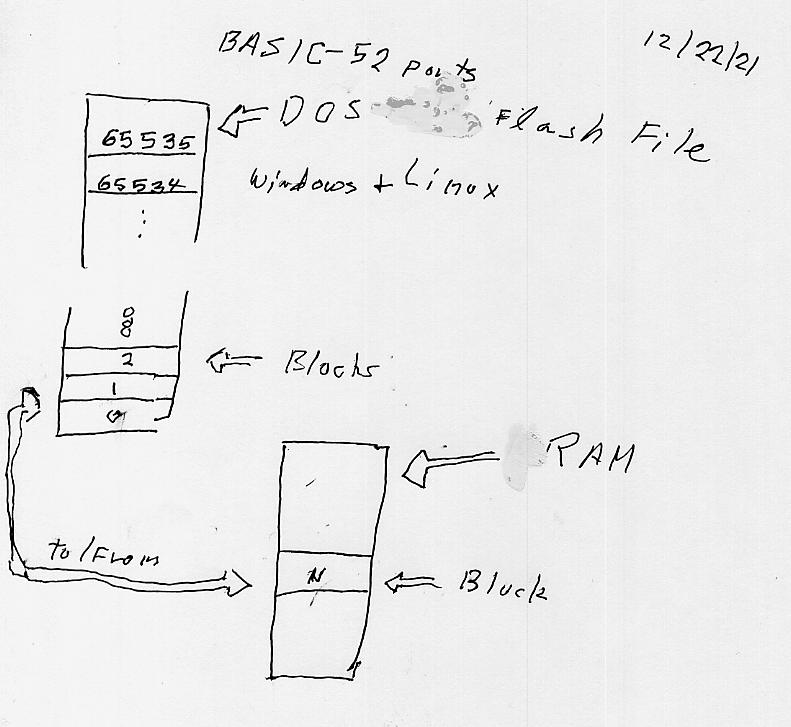 12/22/21
BASIC-52 ports
DOS Flash File
65535
65534
Windows + Linux
2
Blocks
1
0
RAM
To/From
N
Block